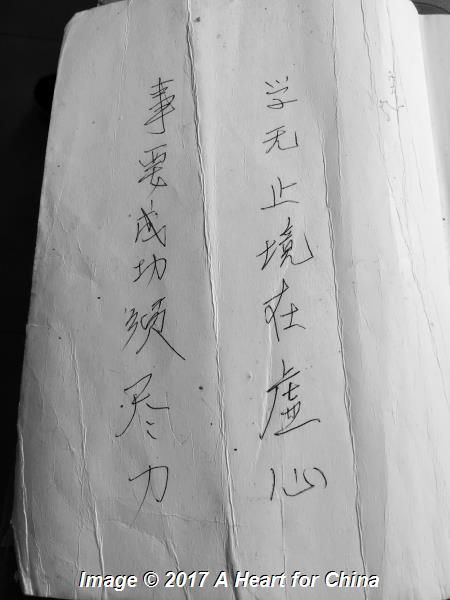 学无止境在虚心
事要成功须尽力
Image © 2017 A Heart for China